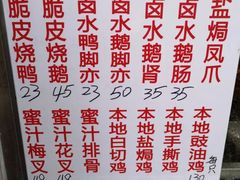 脆皮烧鸭
23
脆皮烧鹅
45
卤水鸭脚亦
23
卤水鹅脚亦
50
卤水鹅肾
35
卤水鹅肠
35
盐焗凤爪
蜜汁梅叉
蜜汁花叉
蜜汁排骨
本地白切鸡
本地盐焗鸡
本地手撕鸡
本地豉油鸡
每只
130